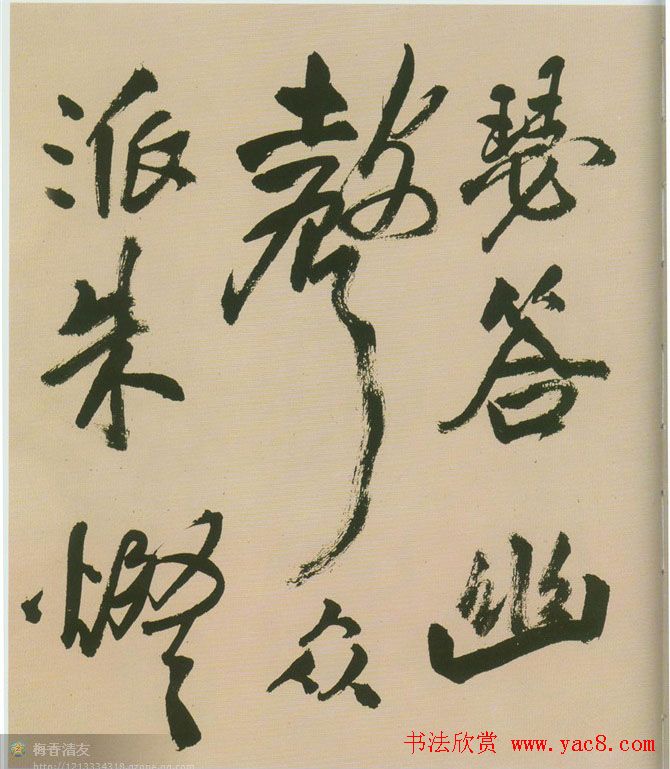 瑟答幽
聲众
派朱燈
梅香清友
书法欣赏 www.yac8.com